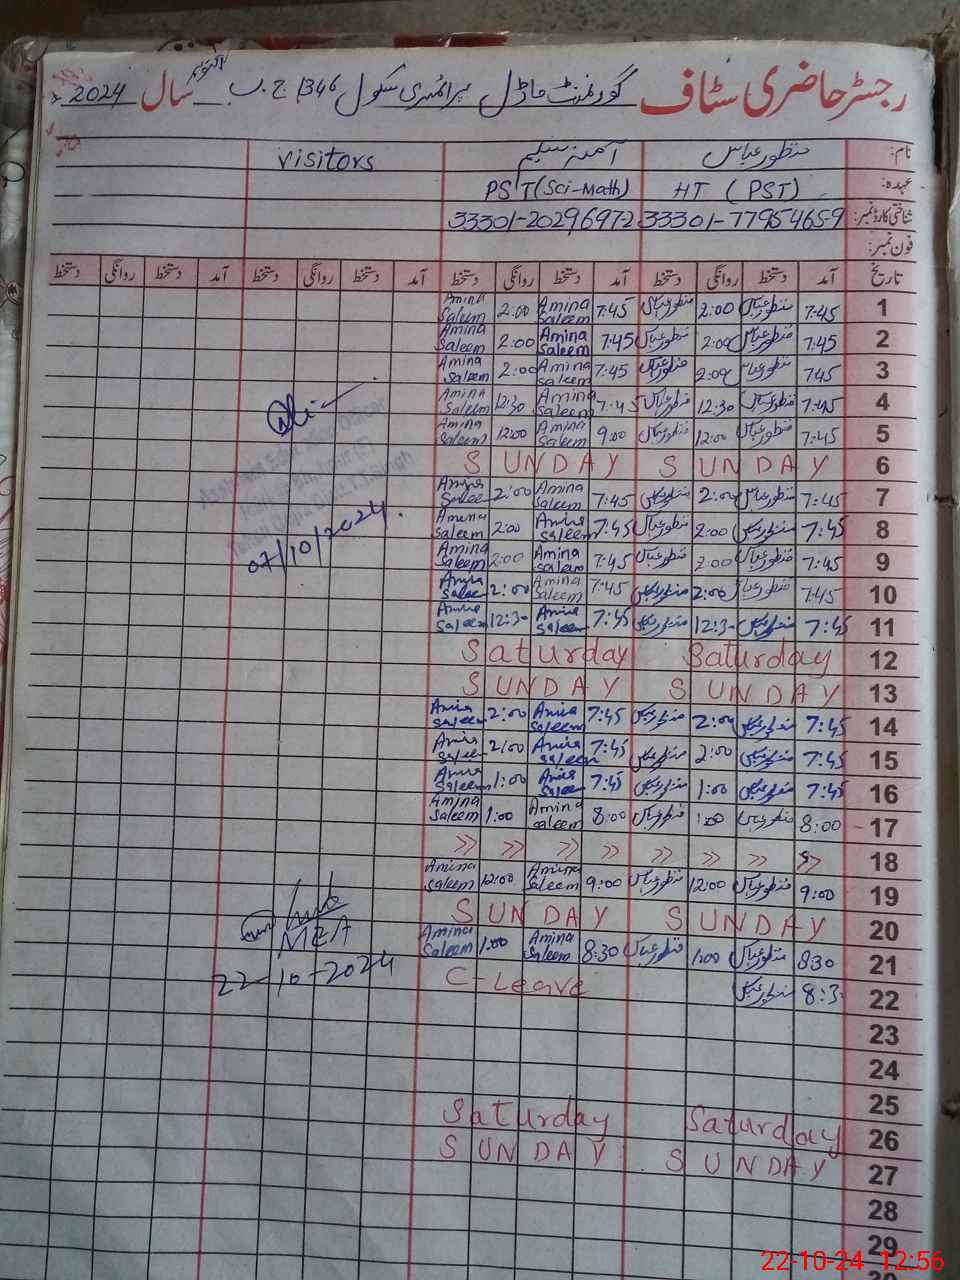 رجسٹر حاضری سٹاف گورنمنٹ ماڈل پرائمری سکول 346 ج ب اکتوبر سال 2024
نام: منظور عباس آمنہ سلیم visitors
عہدہ: HT (PST) PST (Sci-Math)
شناختی کارڈ نمبر: 33301-7795465-9 33301-2029697-2
فون نمبر:
تاریخ آمد دستخط روانگی دستخط آمد دستخط روانگی دستخط آمد دستخط روانگی دستخط آمد دستخط روانگی دستخط
1 7:45 منظور عباس 2:00 منظور عباس 7:45 Amina Saleem 2:00 Amina Saleem
2 7:45 منظور عباس 2:00 منظور عباس 7:45 Amina Saleem 2:00 Amina Saleem
3 7:45 منظور عباس 2:00 منظور عباس 7:45 Amina Saleem 2:00 Amina Saleem
4 7:45 منظور عباس 12:30 منظور عباس 7:45 Amina Saleem 12:30 Amina Saleem
5 7:45 منظور عباس 12:00 منظور عباس 9:00 Amina Saleem 12:00 Amina Saleem
6 SUNDAY SUNDAY
7 7:45 منظور عباس 2:00 منظور عباس 7:45 Amina Saleem 2:00 Amina Saleem
8 7:45 منظور عباس 2:00 منظور عباس 7:45 Amina Saleem 2:00 Amina Saleem
07/10/2024.
9 7:45 منظور عباس 2:00 منظور عباس 7:45 Amina Saleem 2:00 Amina Saleem
10 7:45 منظور عباس 2:00 منظور عباس 7:45 Amina Saleem 2:00 Amina Saleem
11 7:45 منظور عباس 12:30 منظور عباس 7:45 Amina Saleem 12:30 Amina Saleem
12 Saturday Saturday
13 SUNDAY SUNDAY
14 7:45 منظور عباس 2:00 منظور عباس 7:45 Amina Saleem 2:00 Amina Saleem
15 7:45 منظور عباس 2:00 منظور عباس 7:45 Amina Saleem 2:00 Amina Saleem
16 7:45 منظور عباس 1:00 منظور عباس 7:45 Amina Saleem 1:00 Amina Saleem
17 8:00 منظور عباس 1:00 منظور عباس 8:00 Amina Saleem 1:00 Amina Saleem
18 » » » » » » » »
19 9:00 منظور عباس 12:00 منظور عباس 9:00 Amina Saleem 12:00 Amina Saleem
20 SUNDAY SUNDAY
MEA
21 8:30 منظور عباس 1:00 منظور عباس 8:30 Amina Saleem 1:00 Amina Saleem
22 8:3 منظور عباس C-Leave
22-10-2024
23
24
25
26 Saturday Saturday
27 SUNDAY SUNDAY
28
29
22-10-24 12:56